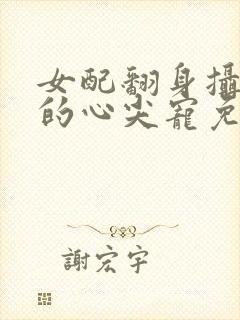 女配翻身攝
的心尖寵免
謝宏宇